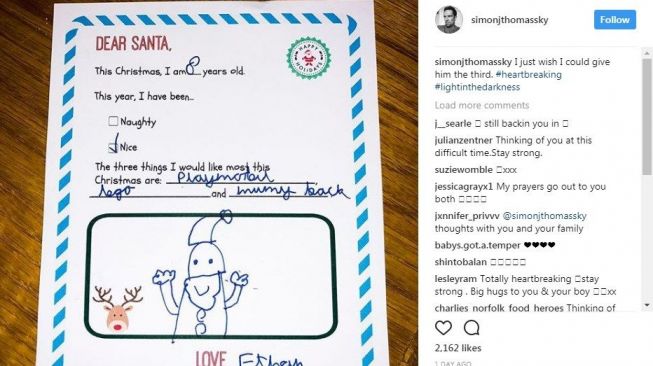 DEAR SANTA,
HAPPY HOLIDAYS
This Christmas, I am 8 years old.
This year, I have been...
Naughty
Nice
The three things I would like most this
Christmas are: Playmobil
lego and mumy back
LOVE Ethan
simonjthomassky
Follow
simonjthomassky I just wish I could give
him the third. #heartbreaking
#lightinthedarkness
Load more comments
j__searle still backin you in
julianzentner Thinking of you at this
difficult time.Stay strong.
suziewomble xxx
jessicagrayx1 My prayers go out to you
both
jxnnifer_privvv @simonjthomassky
thoughts with you and your family
babys.got.a.temper ❤❤❤❤
shintobalan
lesleyram Totally heartbreaking stay
strong . Big hugs to you & your boy xx
charlies_norfolk_food_heroes Thinking of
2,162 likes
1 DAY AGO